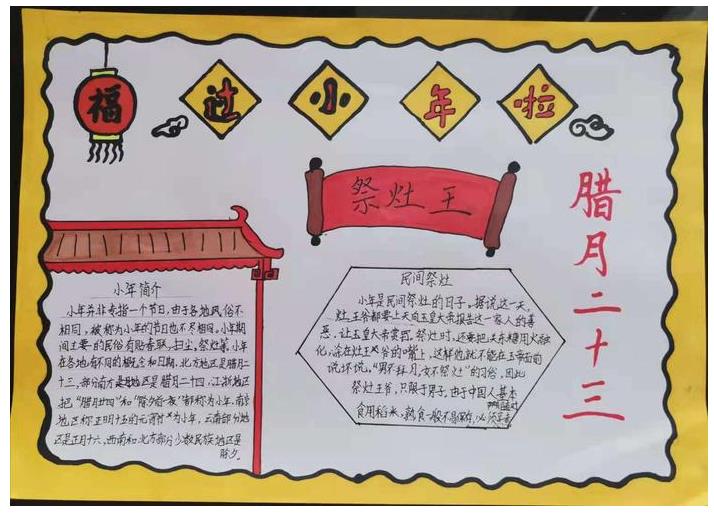 福
过小年啦
祭灶王
腊月二十三
小年简介
小年并非专指一个节日,由于各地风俗不
相同,被称为小年的节日也不尽相同。小年期
间主要的民俗有贴春联、扫尘、祭灶等。小年
在各地有不同的概念和日期,北方地区是腊月二
十三,部分南方地区是腊月二十四,江浙地区
把“腊月廿四”和“除夕前一夜”都称为小年,南京
地区称正月十五的元宵节为小年,云南部分地
区是正月十六,西南和北方部分少数民族地区是
除夕。
民间祭灶
小年是民间祭灶的日子。据说这一天,
灶王爷都要上天向玉皇大帝报告这一家人的善
恶,让玉皇大帝赏罚。祭灶时,还要把关东糖用火融
化,涂在灶王爷的嘴上,这样他就不能在玉帝面前
说坏话。“男不拜月,女不祭灶”的习俗,因此
祭灶王爷,只限于男子,由于中国人基本
食用稻米,熟食一般不易保存,必须